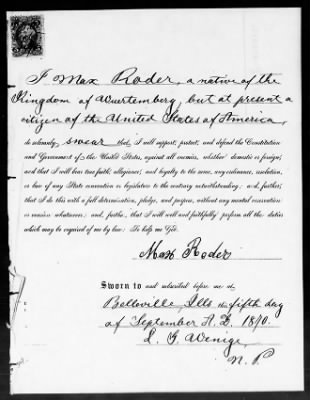 I Max Roder, a native of the
Kingdom of Wuertemberg, but at present a
citizen of the United States of America,
do solemnly swear that I will support, protect, and defend the Constitution
and Government of the United States, against all enemies, whether domestic or foreign;
and that I will bear true faith, allegiance, and loyalty to the same, any ordinance, resolution,
or law of any State convention or legislature to the contrary notwithstanding; and, further,
that I do this with a full determination, pledge, and purpose, without any mental reservation
or evasion whatsoever; and, further, that I will well and faithfully perform all the duties
which may be required of me by law: So help me God.
Max Roder
Sworn to and subscribed before me at
Belleville, Ills this fifth day
of September A. D. 1870.
L. G. Wenige
N. P.